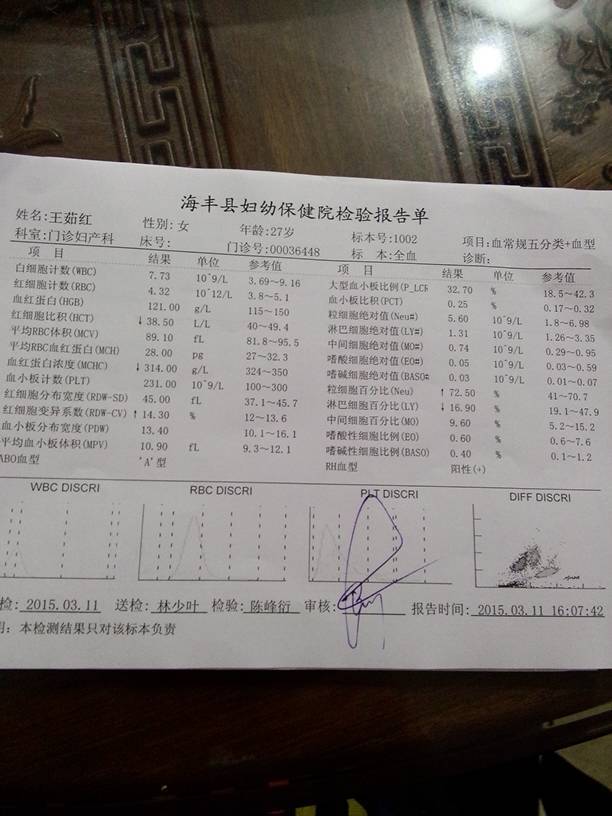 海丰县妇幼保健院检验报告单
姓名:王茹红 性别:女 年龄:27岁 标本号:1002 项目:血常规五分类+血型
科室:门诊妇产科 床号: 门诊号:00036448 标 本:全血 诊断:
项 目 结果 单位 参考值 项 目 结果 单位 参考值
白细胞计数(WBC) 7.73 10^9/L 3.69~9.16 大型血小板比例(P_LCR 32.70 % 18.5~42.3
红细胞计数(RBC) 4.32 10^12/L 3.8~5.1 血小板比积(PCT) 0.25 % 0.17~0.32
血红蛋白(HGB) 121.00 g/L 115~150 粒细胞绝对值(Neu#) 5.60 10^9/L 1.8~6.98
红细胞比积(HCT) ↓38.50 L/L 40~49.4 淋巴细胞绝对值(LY#) 1.31 10^9/L 1.26~3.35
平均RBC体积(MCV) 89.10 fL 81.8~95.5 中间细胞绝对值(MO#) 0.74 10^9/L 0.29~0.95
平均RBC血红蛋白(MCH) 28.00 pg 27~32.3 嗜酸细胞绝对值(EO#) 0.05 10^9/L 0.03~0.59
血红蛋白浓度(MCHC) ↓314.00 g/L 324~350 嗜碱细胞绝对值(BASO# 0.03 10^9/L 0.01~0.07
血小板计数(PLT) 231.00 10^9/L 100~300 粒细胞百分比(Neu) ↑72.50 % 41~70.7
红细胞分布宽度(RDW-SD) 45.00 fL 37.1~45.7 淋巴细胞百分比(LY) ↓16.90 % 19.1~47.9
红细胞变异系数(RDW-CV) ↑14.30 % 12~13.6 中间细胞百分比(MO) 9.60 % 5.2~15.2
血小板分布宽度(PDW) 13.40 10.1~16.1 嗜酸性细胞比例(EO) 0.60 % 0.6~7.6
平均血小板体积(MPV) 10.90 fL 9.3~12.1 嗜碱性细胞比例(BASO) 0.40 % 0.1~1.2
ABO血型 'A'型 RH血型 阳性(+)
WBC DISCRI RBC DISCRI PLT DISCRI DIFF DISCRI
检: 2015.03.11 送检: 林少叶 检验: 陈峰衍 审核: 报告时间: 2015.03.11 16:07:42
明: 本检测结果只对该标本负责